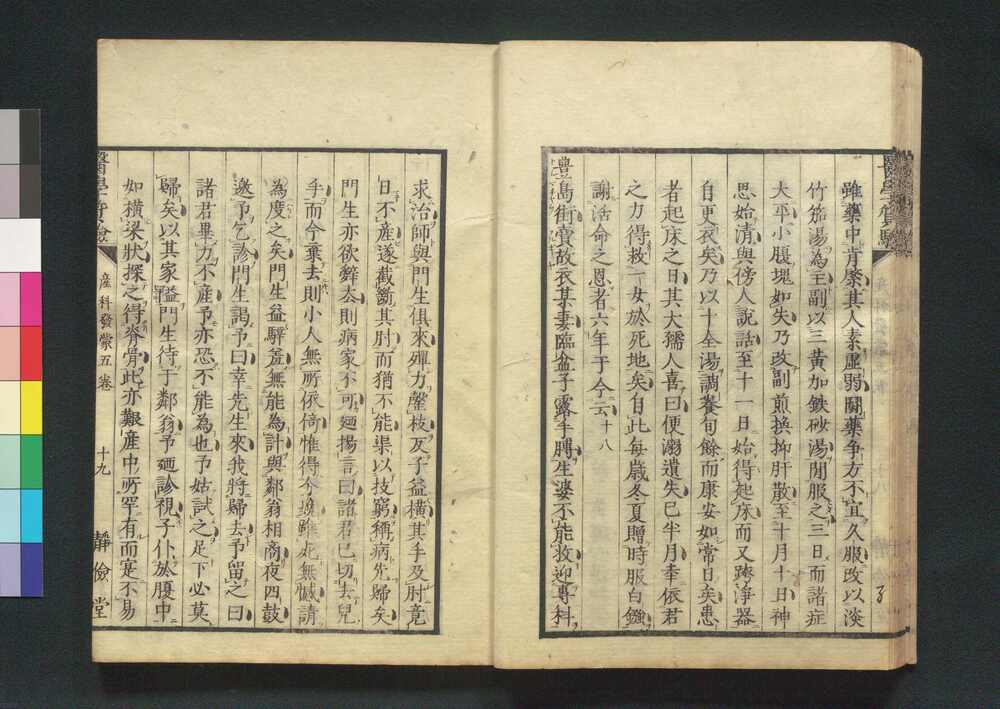 雖藥中肯綮其人素虛弱鬬藥争方不宜久服改以淡
竹筎湯為主副以三黃加鉄砂湯閒服之三日而諸症
大平小腹塊如失乃改副煎換抑肝散至十月十日神
思始清與傍人說話至十一日始得起床而又跨浄器
自更衣矣乃以十全湯調養旬餘而康安如常日矣患
者起床之日其大孺人喜曰便溺遺失已半月幸依君
之力得救一女於死地矣自此每歲冬夏贈時服白鏹
謝活命之恩者六年于今云十八
豊島街賣故衣某妻臨盆子露手膊生婆不能救迎專科
求治師與門生俱來殫力鑿枝反子益橫其手及肘竟
日不產遂截斷其肘而猶不能渠以技窮稱病先歸矣
門生亦欲辭去則病家不可廼揚言曰諸君已切去兒
手而今棄去則小人無所依倚惟得今娩雖死無憾請
為度之矣門生益驛羞無能為計與鄰翁相商夜四鼓
邀予乞診門生謁予曰幸先生來我將歸去予留之曰
諸君畢力不產予亦恐不能為也予姑試之足下必莫
歸矣以其家隘門生待于鄰翁予廼診視子仆於腹中
如橫梁狀探之得脊骨此亦艱產中所罕有而寔不易
產科發蒙五卷
十九
靜儉堂